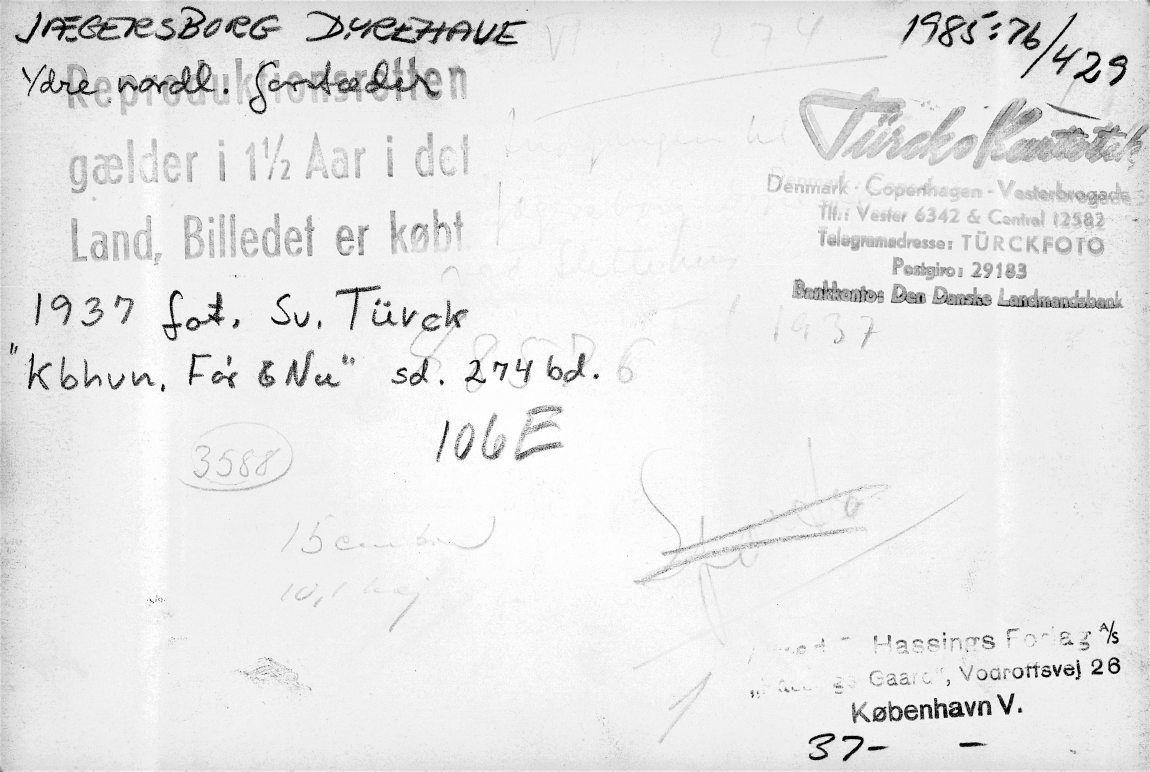 JÆGERSBORG DYREHAVE
VI 274
1985:76/429
Ydre nordl. forstæder
Reproduktionsretten
gælder i 1½ Aar i det
Land, Billedet er købt
Indgangen til
Türcks
Denmark - Copenhagen - Vesterbrogade
Tlf.: Vester 6342 & Central 12582
Telegramadresse: TÜRCKFOTO
Postgiro: 29183
Bankkonto: Den Danske Landmandsbank
ved
1937 fot. Sv. Türck
1937
"Kbhvn. Før & Nu" sd. 274 bd. 6
106E
3588
15 cm
10,1 høj
Hassings Forlag A/S
Gaard", Vodroffsvej 26
København V.
37- -